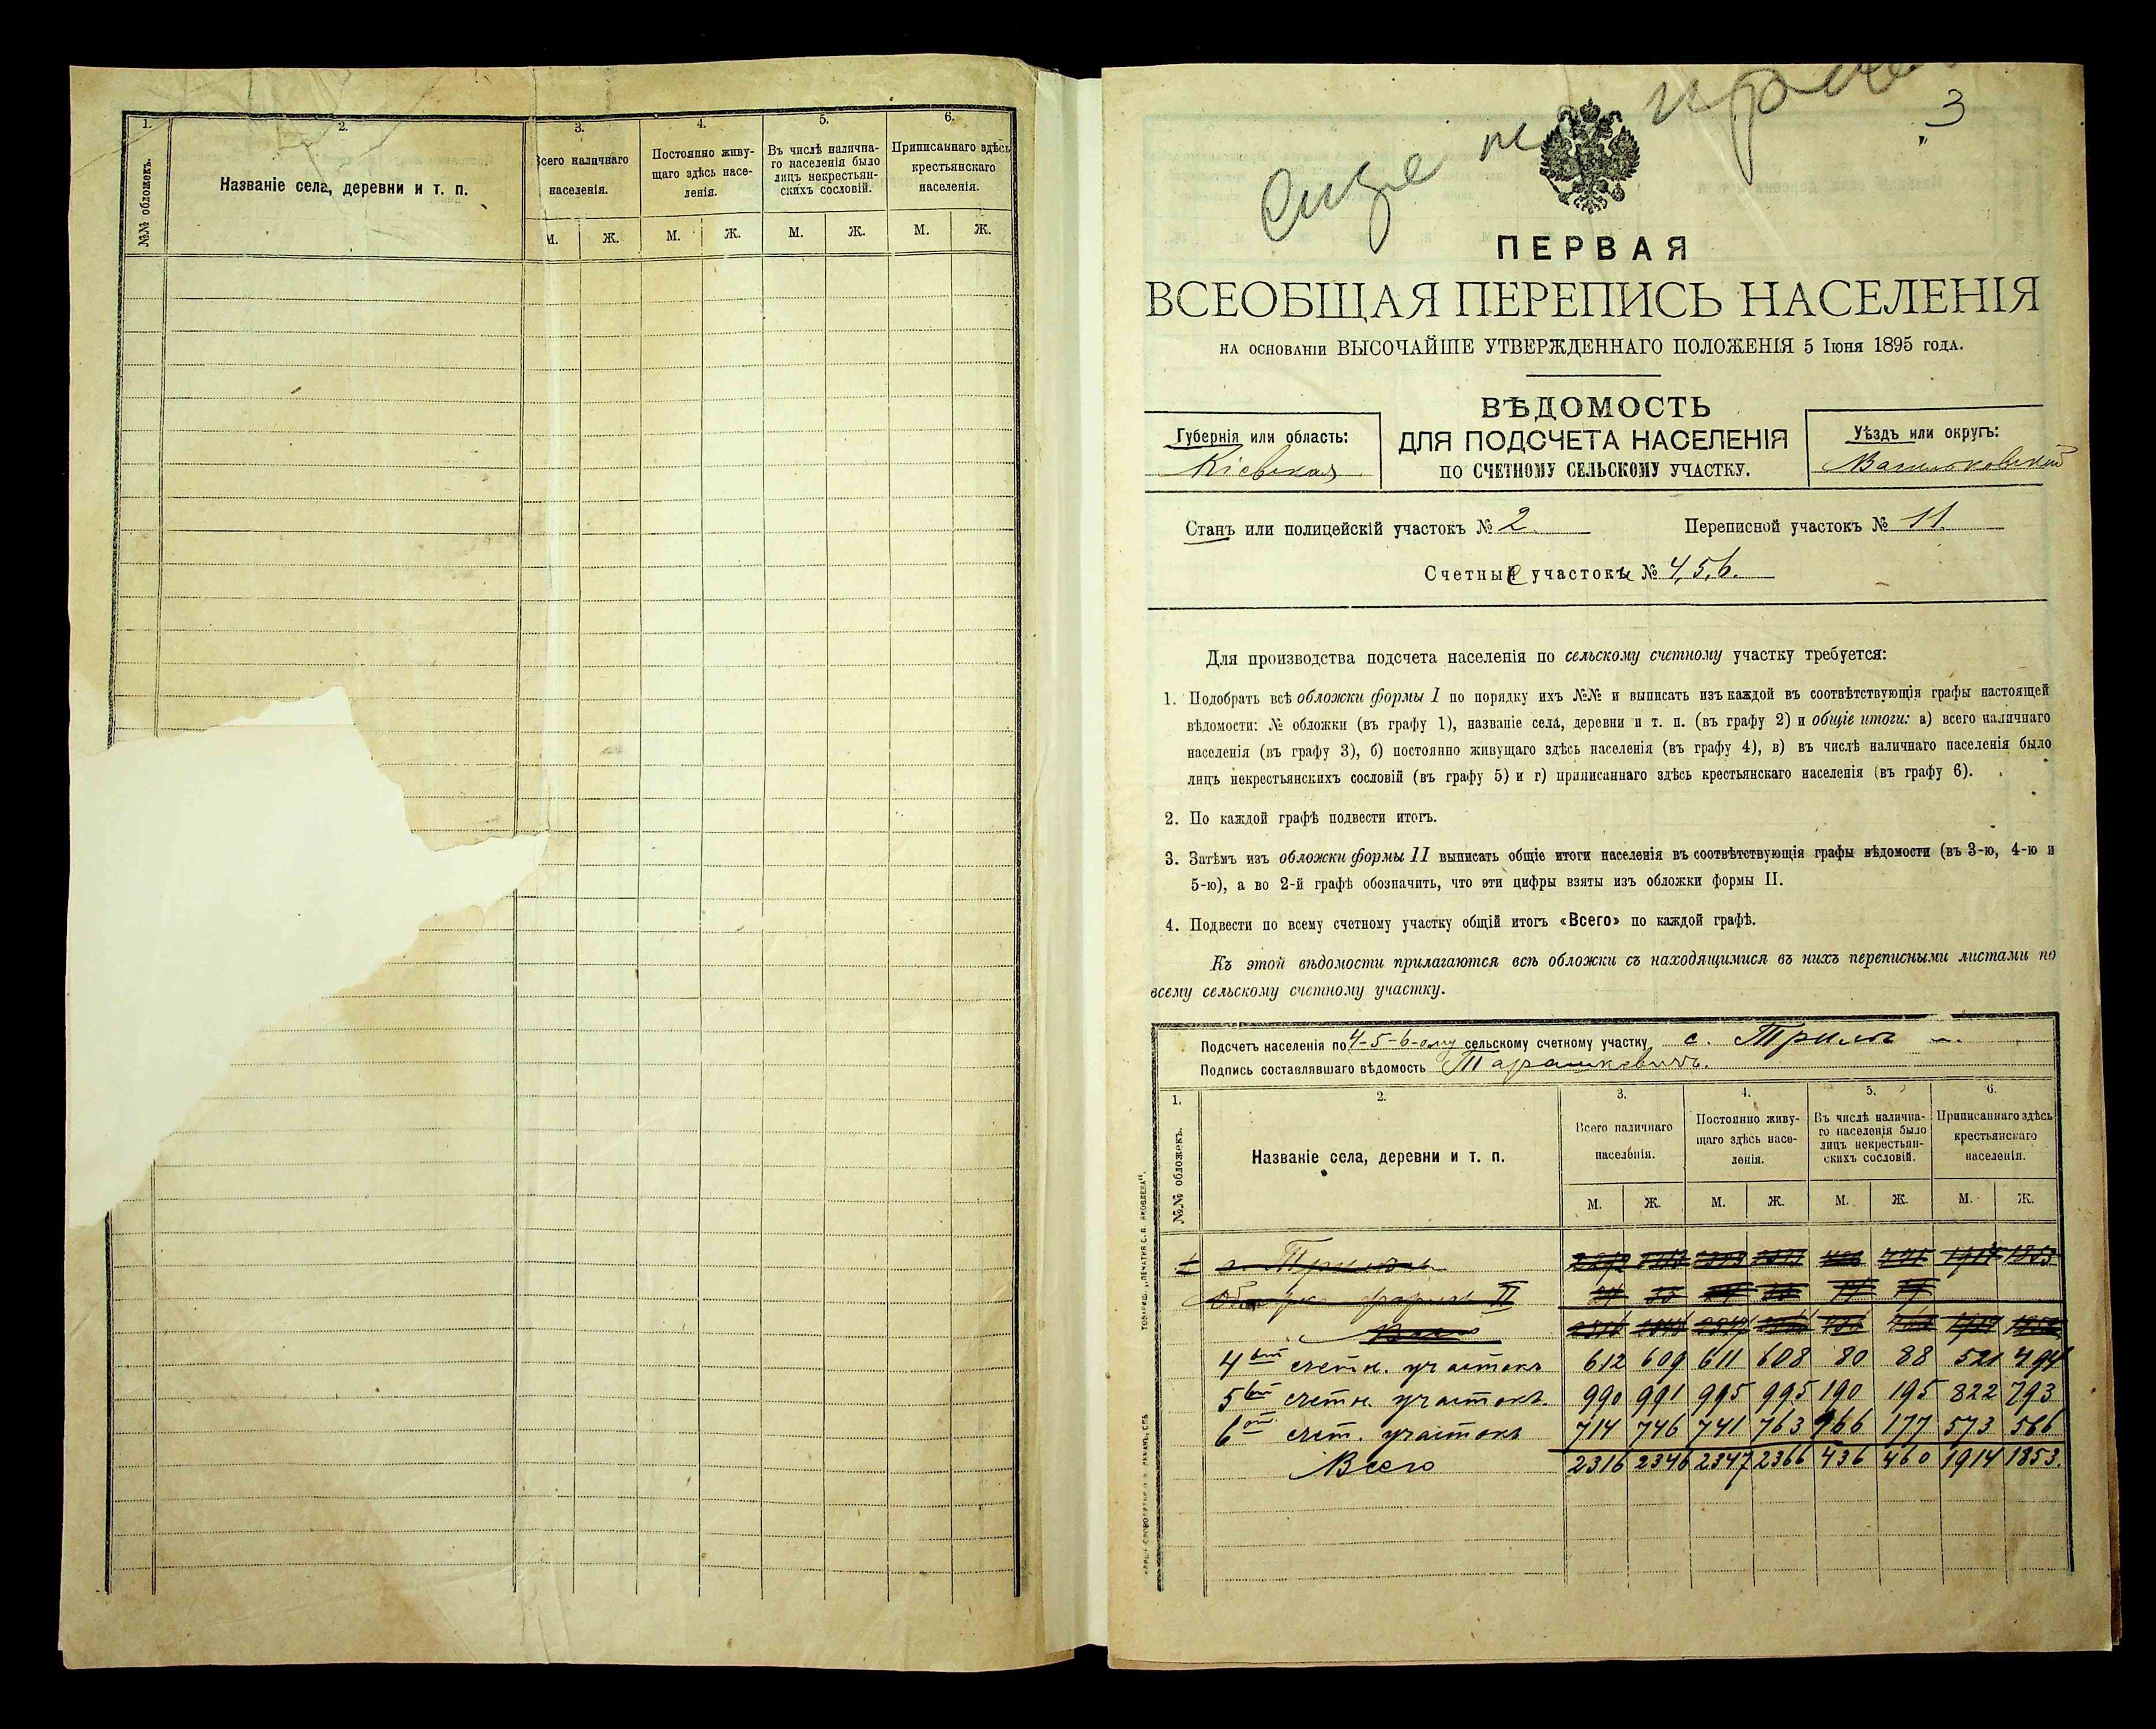 1.
2.
3.
4.
5.
6.
№№ обложекъ.
Названіе села, деревни и т. п.
Всего наличнаго населенія.
Постоянно живу-
щаго здѣсь насе-
ленія.
Въ числѣ налична-
го населенія было
лицъ некрестьян-
скихъ сословій.
Приписаннаго здѣсь
крестьянскаго
населенія.
М. Ж. М. Ж. М. Ж. М. Ж.
3
ПЕРВАЯ
ВСЕОБЩАЯ ПЕРЕПИСЬ НАСЕЛЕНІЯ
НА ОСНОВАНІИ ВЫСОЧАЙШЕ УТВЕРЖДЕННАГО ПОЛОЖЕНІЯ 5 Іюня 1895 года.
ВѢДОМОСТЬ
ДЛЯ ПОДСЧЕТА НАСЕЛЕНІЯ
ПО СЧЕТНОМУ СЕЛЬСКОМУ УЧАСТКУ.
Губернія или область:
Кіевская
Уѣздъ или округъ:
Васильковскій
Станъ или полицейскій участокъ № 2
Переписной участокъ № 11
Счетные участки № 4, 5, 6.
Для производства подсчета населенія по сельскому счетному участку требуется:
1. Подобрать всѣ обложки формы I по порядку ихъ №№ и выписать изъ каждой въ соотвѣтствующія графы настоящей
вѣдомости: № обложки (въ графу 1), названіе села, деревни и т. п. (въ графу 2) и общіе итоги: а) всего наличнаго
населенія (въ графу 3), б) постоянно живущаго здѣсь населенія (въ графу 4), в) въ числѣ наличнаго населенія было
лицъ некрестьянскихъ сословій (въ графу 5) и г) приписаннаго здѣсь крестьянскаго населенія (въ графу 6).
2. По каждой графѣ подвести итогъ.
3. Затѣмъ изъ обложки формы II выписать общіе итоги населенія въ соотвѣтствующія графы вѣдомости (въ 3-ю, 4-ю и
5-ю), а во 2-й графѣ обозначить, что эти цифры взяты изъ обложки формы II.
4. Подвести по всему счетному участку общій итогъ «Всего» по каждой графѣ.
Къ этой вѣдомости прилагаются всѣ обложки съ находящимися въ нихъ переписными листами по
всему сельскому счетному участку.
Подсчетъ населенія по 4-5-6-ому сельскому счетному участку с. Трилѣ
Подпись составлявшаго вѣдомость Тарашкевичъ.
1.
2.
3.
4.
5.
6.
№№ обложекъ.
Названіе села, деревни и т. п.
Всего наличнаго
населенія.
Постоянно живу-
щаго здѣсь насе-
ленія.
Въ числѣ налична-
го населенія было
лицъ некрестьян-
скихъ сословій.
Приписаннаго здѣсь
крестьянскаго
населенія.
М. Ж. М. Ж. М. Ж. М. Ж.
1914 1853
II
4ый счетн. участокъ 612 609 611 608 80 88 521 494
5ый счетн. участокъ. 990 991 995 995 190 195 822 793
6ой счет. участокъ 714 746 741 763 166 177 573 566
Всего 2316 2346 2347 2366 436 460 1914 1853.